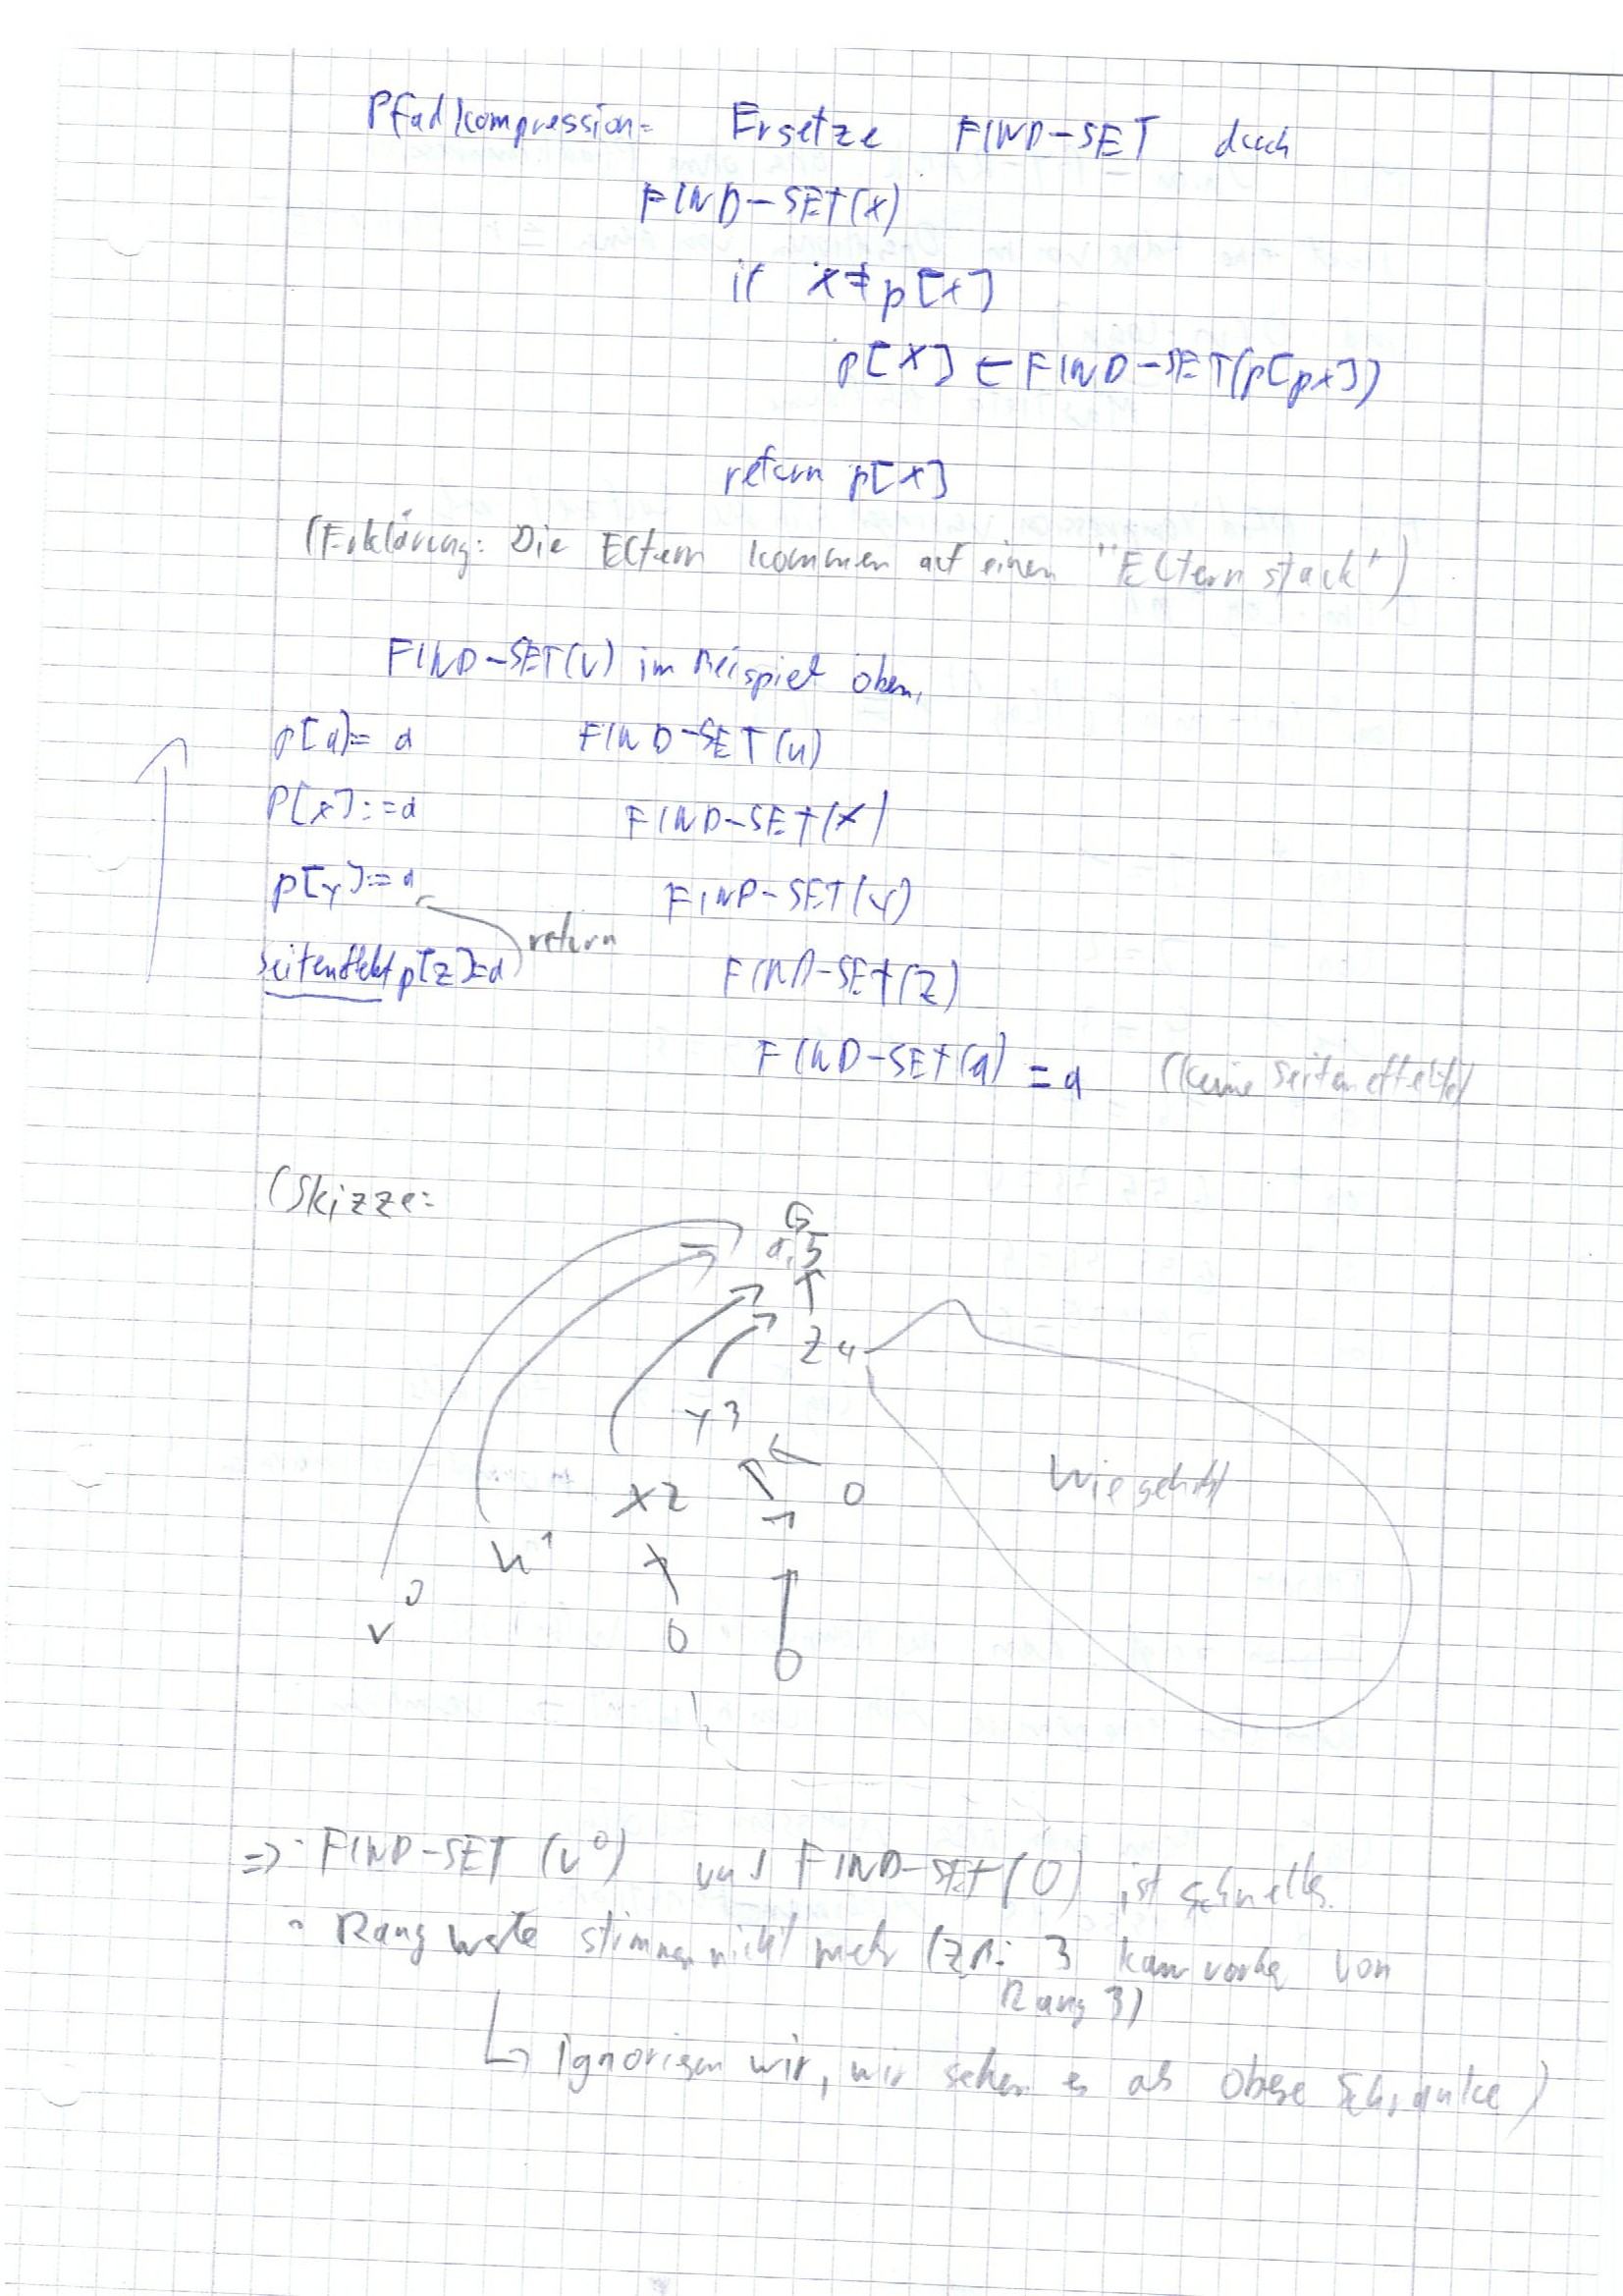 Pfadkompression: Ersetze FIND-SET durch
FIND-SET(x)
if x≠p[x]
p[x] ← FIND-SET(p[px])
return p[x]
(Erklärung: Die Eltern kommen auf einen "Elternstack")
FIND-SET(v) im Beispiel oben,
p[u]= a FIND-SET(u)
p[x]:=a FIND-SET(x)
p[y]:=a FIND-SET(y)
return
Seiteneffekt p[z]=a FIND-SET(z)
FIND-SET(a) = a (keine Seiteneffekte)
(Skizze:
a,5
z 4
y 3
x 2 0 wie gehabt
u 1
v 0 0 0
=> · FIND-SET (v0) und FIND-SET(0) ist schneller.
· Rangwerte stimmen nicht mehr (z.B. 3 kam vorher von
Rang 3)
↳ Ignorieren wir, wir sehen es als obere Schranke)